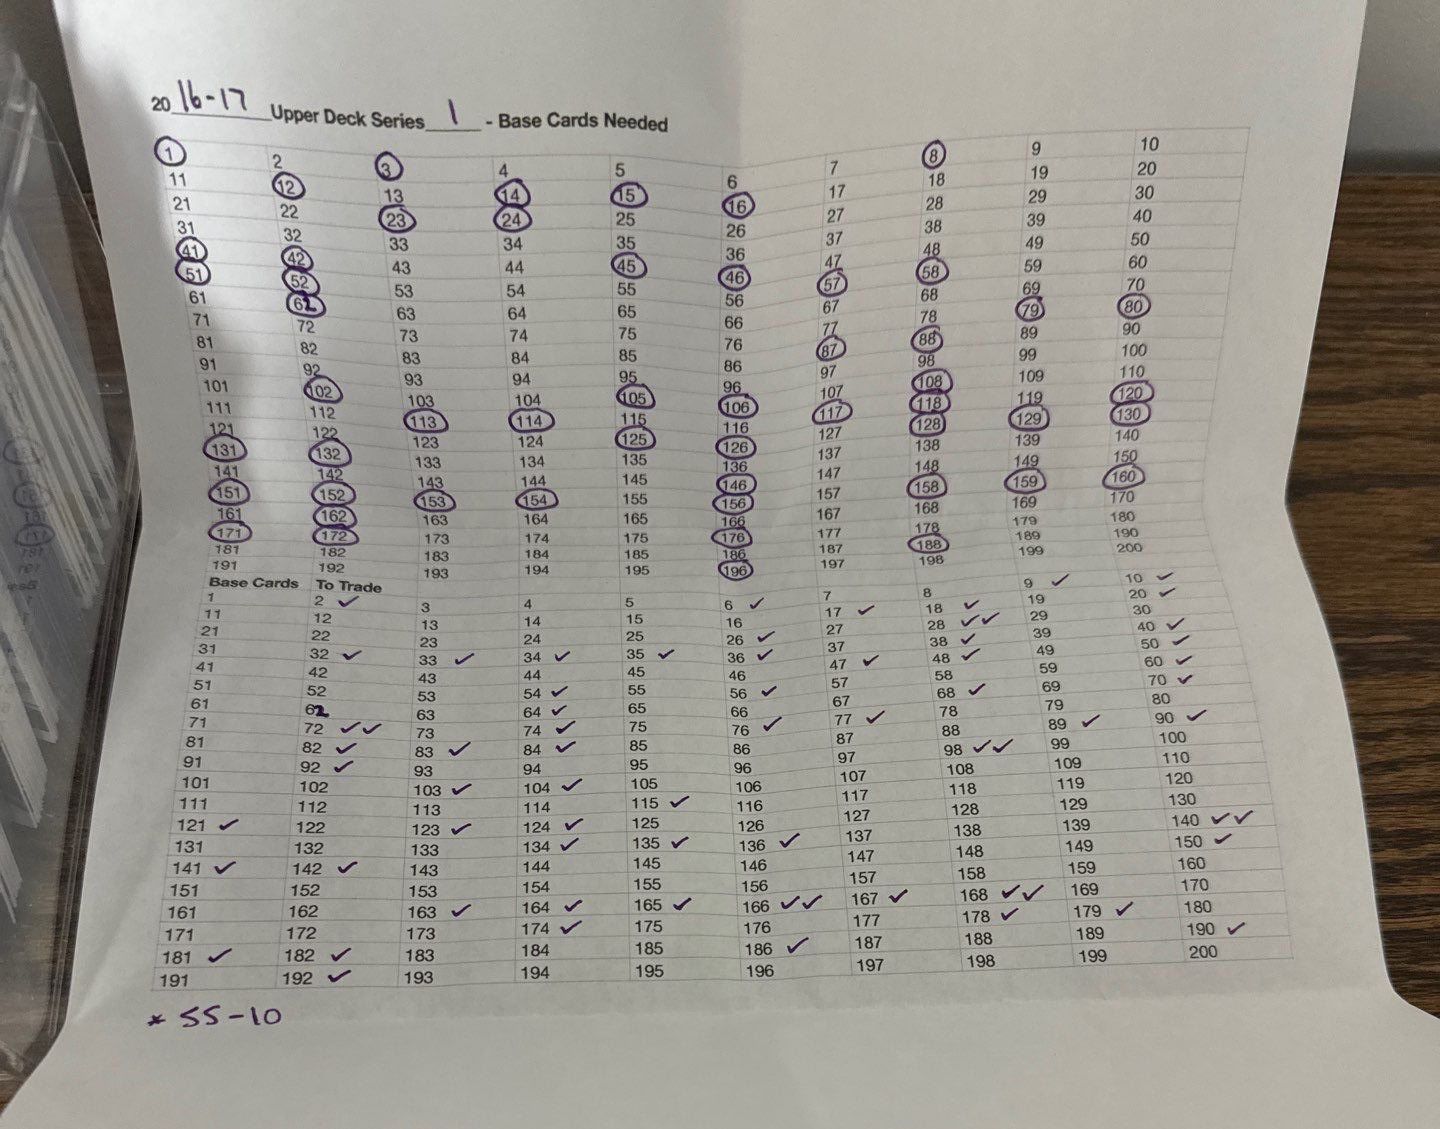 20 16-17 Upper Deck Series 1 - Base Cards Needed
1 2 3 4 5 6 7 8 9 10
11 12 13 14 15 16 17 18 19 20
21 22 23 24 25 26 27 28 29 30
31 32 33 34 35 36 37 38 39 40
41 42 43 44 45 46 47 48 49 50
51 52 53 54 55 56 57 58 59 60
61 62 63 64 65 66 67 68 69 70
71 72 73 74 75 76 77 78 79 80
81 82 83 84 85 86 87 88 89 90
91 92 93 94 95 96 97 98 99 100
101 102 103 104 105 106 107 108 109 110
111 112 113 114 115 116 117 118 119 120
121 122 123 124 125 126 127 128 129 130
131 132 133 134 135 136 137 138 139 140
141 142 143 144 145 146 147 148 149 150
151 152 153 154 155 156 157 158 159 160
161 162 163 164 165 166 167 168 169 170
171 172 173 174 175 176 177 178 179 180
181 182 183 184 185 186 187 188 189 190
191 192 193 194 195 196 197 198 199 200
Base Cards To Trade
1 2 ✓ 3 4 5 6 ✓ 7 8 9 ✓ 10 ✓
11 12 13 14 15 16 17 ✓ 18 ✓ 19 20 ✓
21 22 23 24 25 26 ✓ 27 28 ✓✓ 29 30
31 32 ✓ 33 ✓ 34 ✓ 35 ✓ 36 ✓ 37 38 ✓ 39 40 ✓
41 42 43 44 45 46 47 ✓ 48 ✓ 49 50 ✓
51 52 53 54 ✓ 55 56 ✓ 57 58 59 60 ✓
61 62 63 64 ✓ 65 66 67 68 ✓ 69 70 ✓
71 72 ✓✓ 73 74 ✓ 75 76 ✓ 77 ✓ 78 79 80
81 82 ✓ 83 ✓ 84 ✓ 85 86 87 88 89 ✓ 90 ✓
91 92 ✓ 93 94 95 96 97 98 ✓✓ 99 100
101 102 103 ✓ 104 ✓ 105 106 107 108 109 110
111 112 113 114 115 ✓ 116 117 118 119 120
121 ✓ 122 123 ✓ 124 ✓ 125 126 127 128 129 130
131 132 133 134 ✓ 135 ✓ 136 ✓ 137 138 139 140 ✓✓
141 ✓ 142 ✓ 143 144 145 146 147 148 149 150 ✓
151 152 153 154 155 156 157 158 159 160
161 162 163 ✓ 164 ✓ 165 ✓ 166 ✓✓ 167 ✓ 168 ✓✓ 169 170
171 172 173 174 ✓ 175 176 177 178 ✓ 179 ✓ 180
181 ✓ 182 ✓ 183 184 185 186 ✓ 187 188 189 190 ✓
191 192 ✓ 193 194 195 196 197 198 199 200
* SS-10